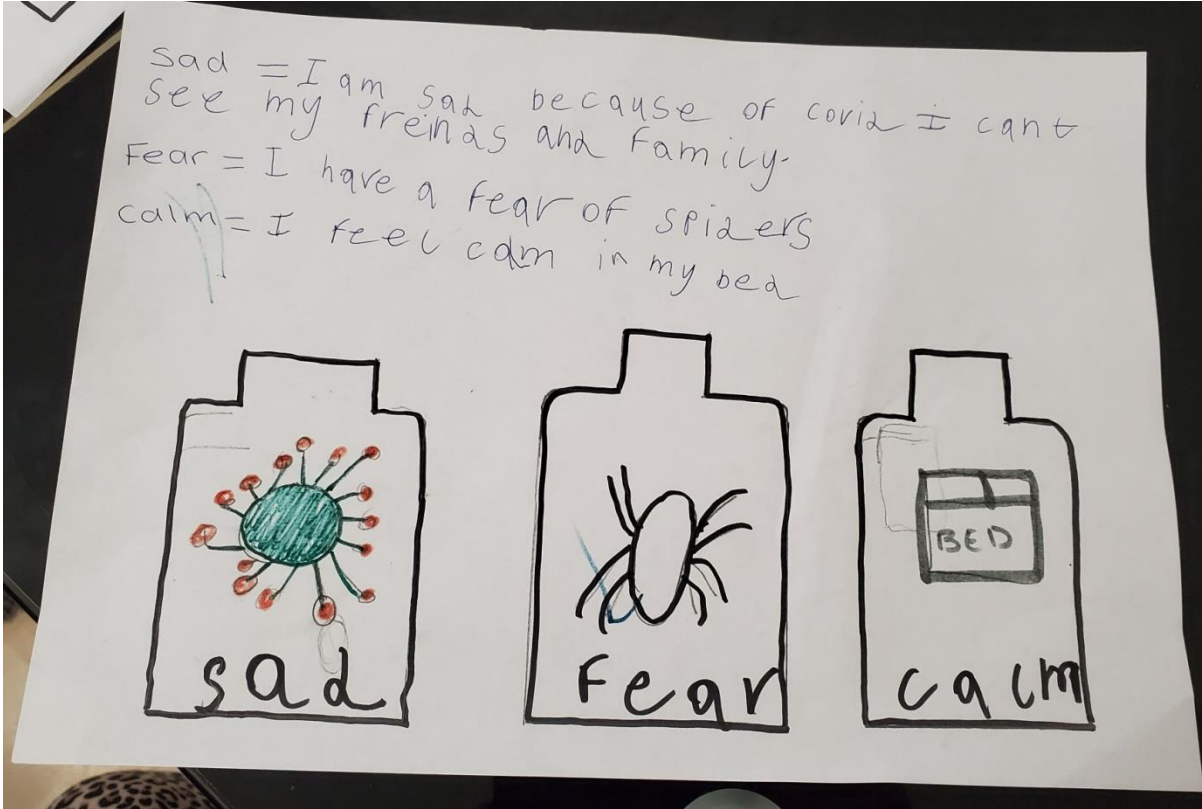 sad = I am sad because of covid I cant
see my freinds and family.
Fear = I have a fear of spiders
calm = I feel calm in my bed
BED
sad
Fear
calm